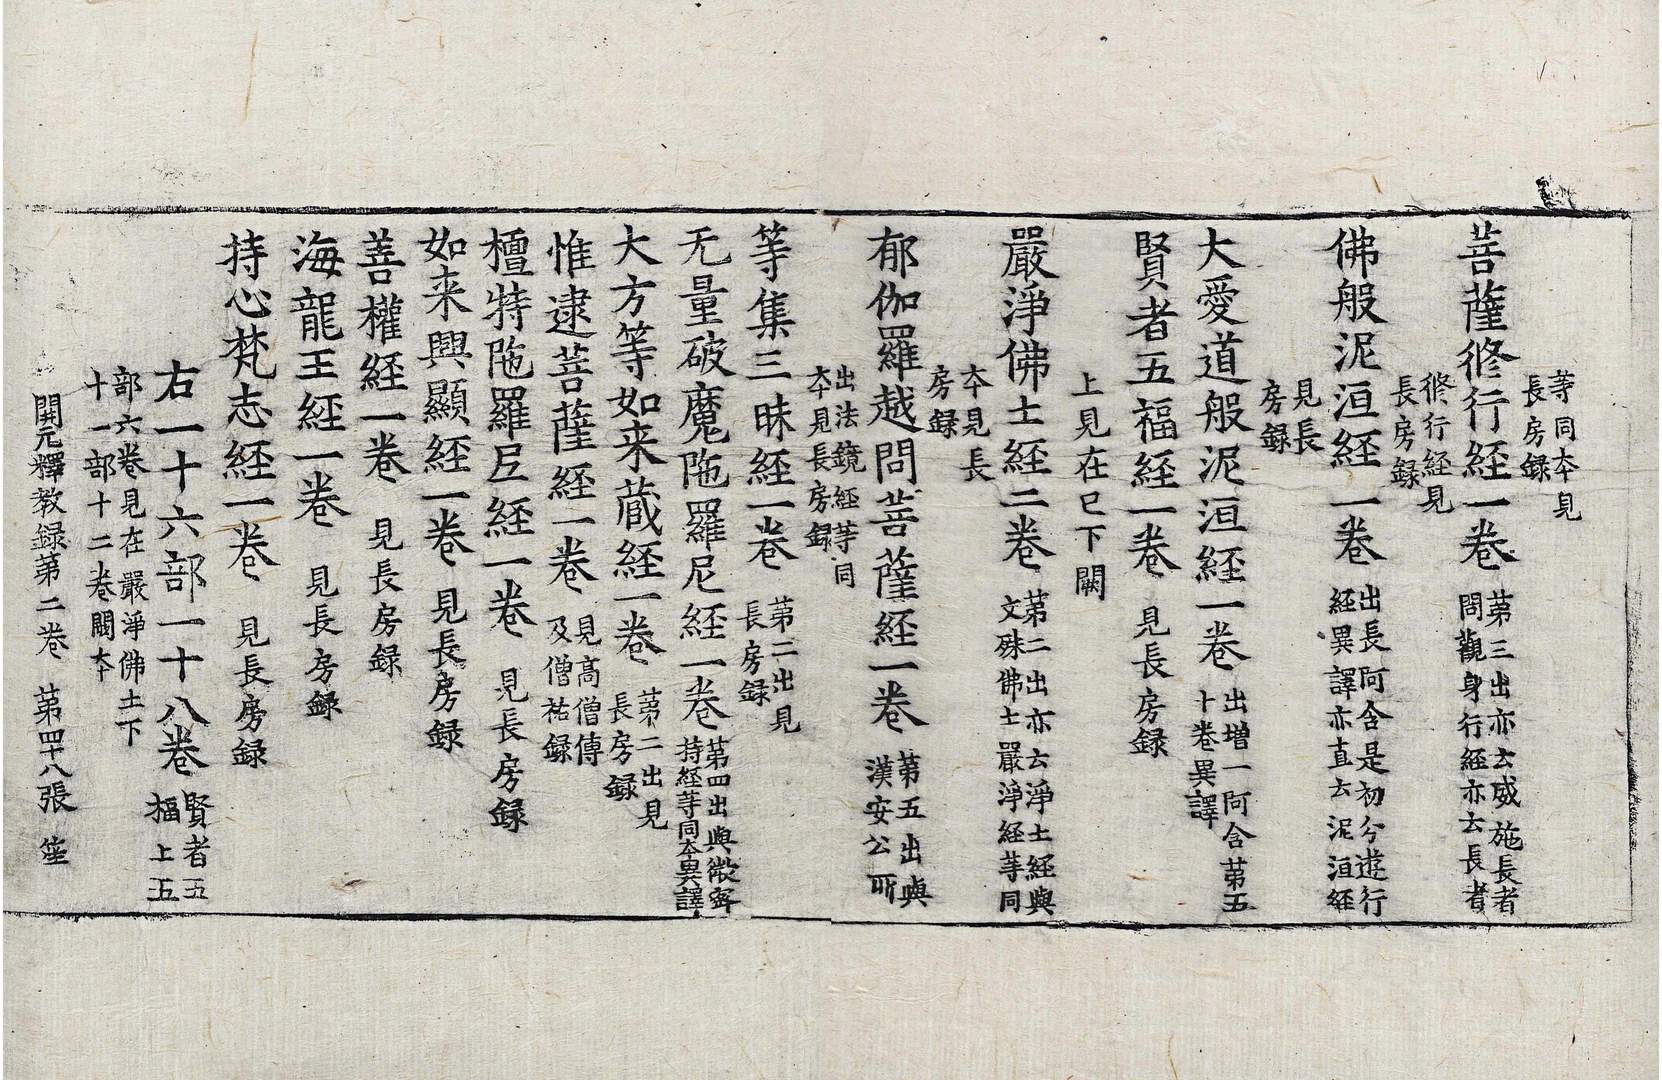 菩薩修行経一巻 第三出亦云威施長者問觀身行経亦云長者
修行経見長房録
佛般泥洹経一巻 出長阿含是初分遊行経異譯亦直云泥洹経
見長房録
大愛道般泥洹経一巻 出増一阿含第五十卷異譯
賢者五福経一巻 見長房録
上見在已下闕
嚴淨佛土経二巻 第二出亦云淨土経與文殊佛土嚴淨経等同
夲見長房録
郁伽羅越問菩薩経一巻 第五出與漢安公所
出法鏡経等同夲見長房録
等集三昧経一巻 第二出見長房録
无量破魔陁羅尼経一巻 第四出與微密持経等同夲異譯
大方等如来蔵経一巻 第二出見長房録
惟逮菩薩経一巻 見高僧傳及僧祐録
檀特陁羅尼経一巻 見長房録
如来興顯経一巻 見長房録
善權経一巻 見長房録
海龍王経一巻 見長房録
持心梵志経一巻 見長房録
右一十六部一十八巻 賢者五福上五
部六巻見在嚴淨佛土下十一部十二巻闕夲
開元釋教録第二巻 第四十八張 笙
等同夲見長房録